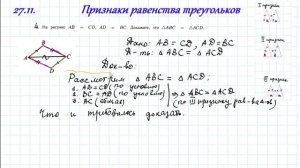 27.11. Признаки равенства треугольников
I признак
4. На рисунке AB = CD, AD = BC. Докажите, что △ABC = △ACD.
Дано: AB = CD, AD = BC
Д-ть: △ABC = △ACD
Док-во:
Рассмотрим △ABC = △ACD:
1. AB=CD (по условию)
2. BC=AD (по условию) ⇒ △ABC = △ACD
3. AC (общая) (по III признаку рав-ва △)
Что и требовалось доказать.